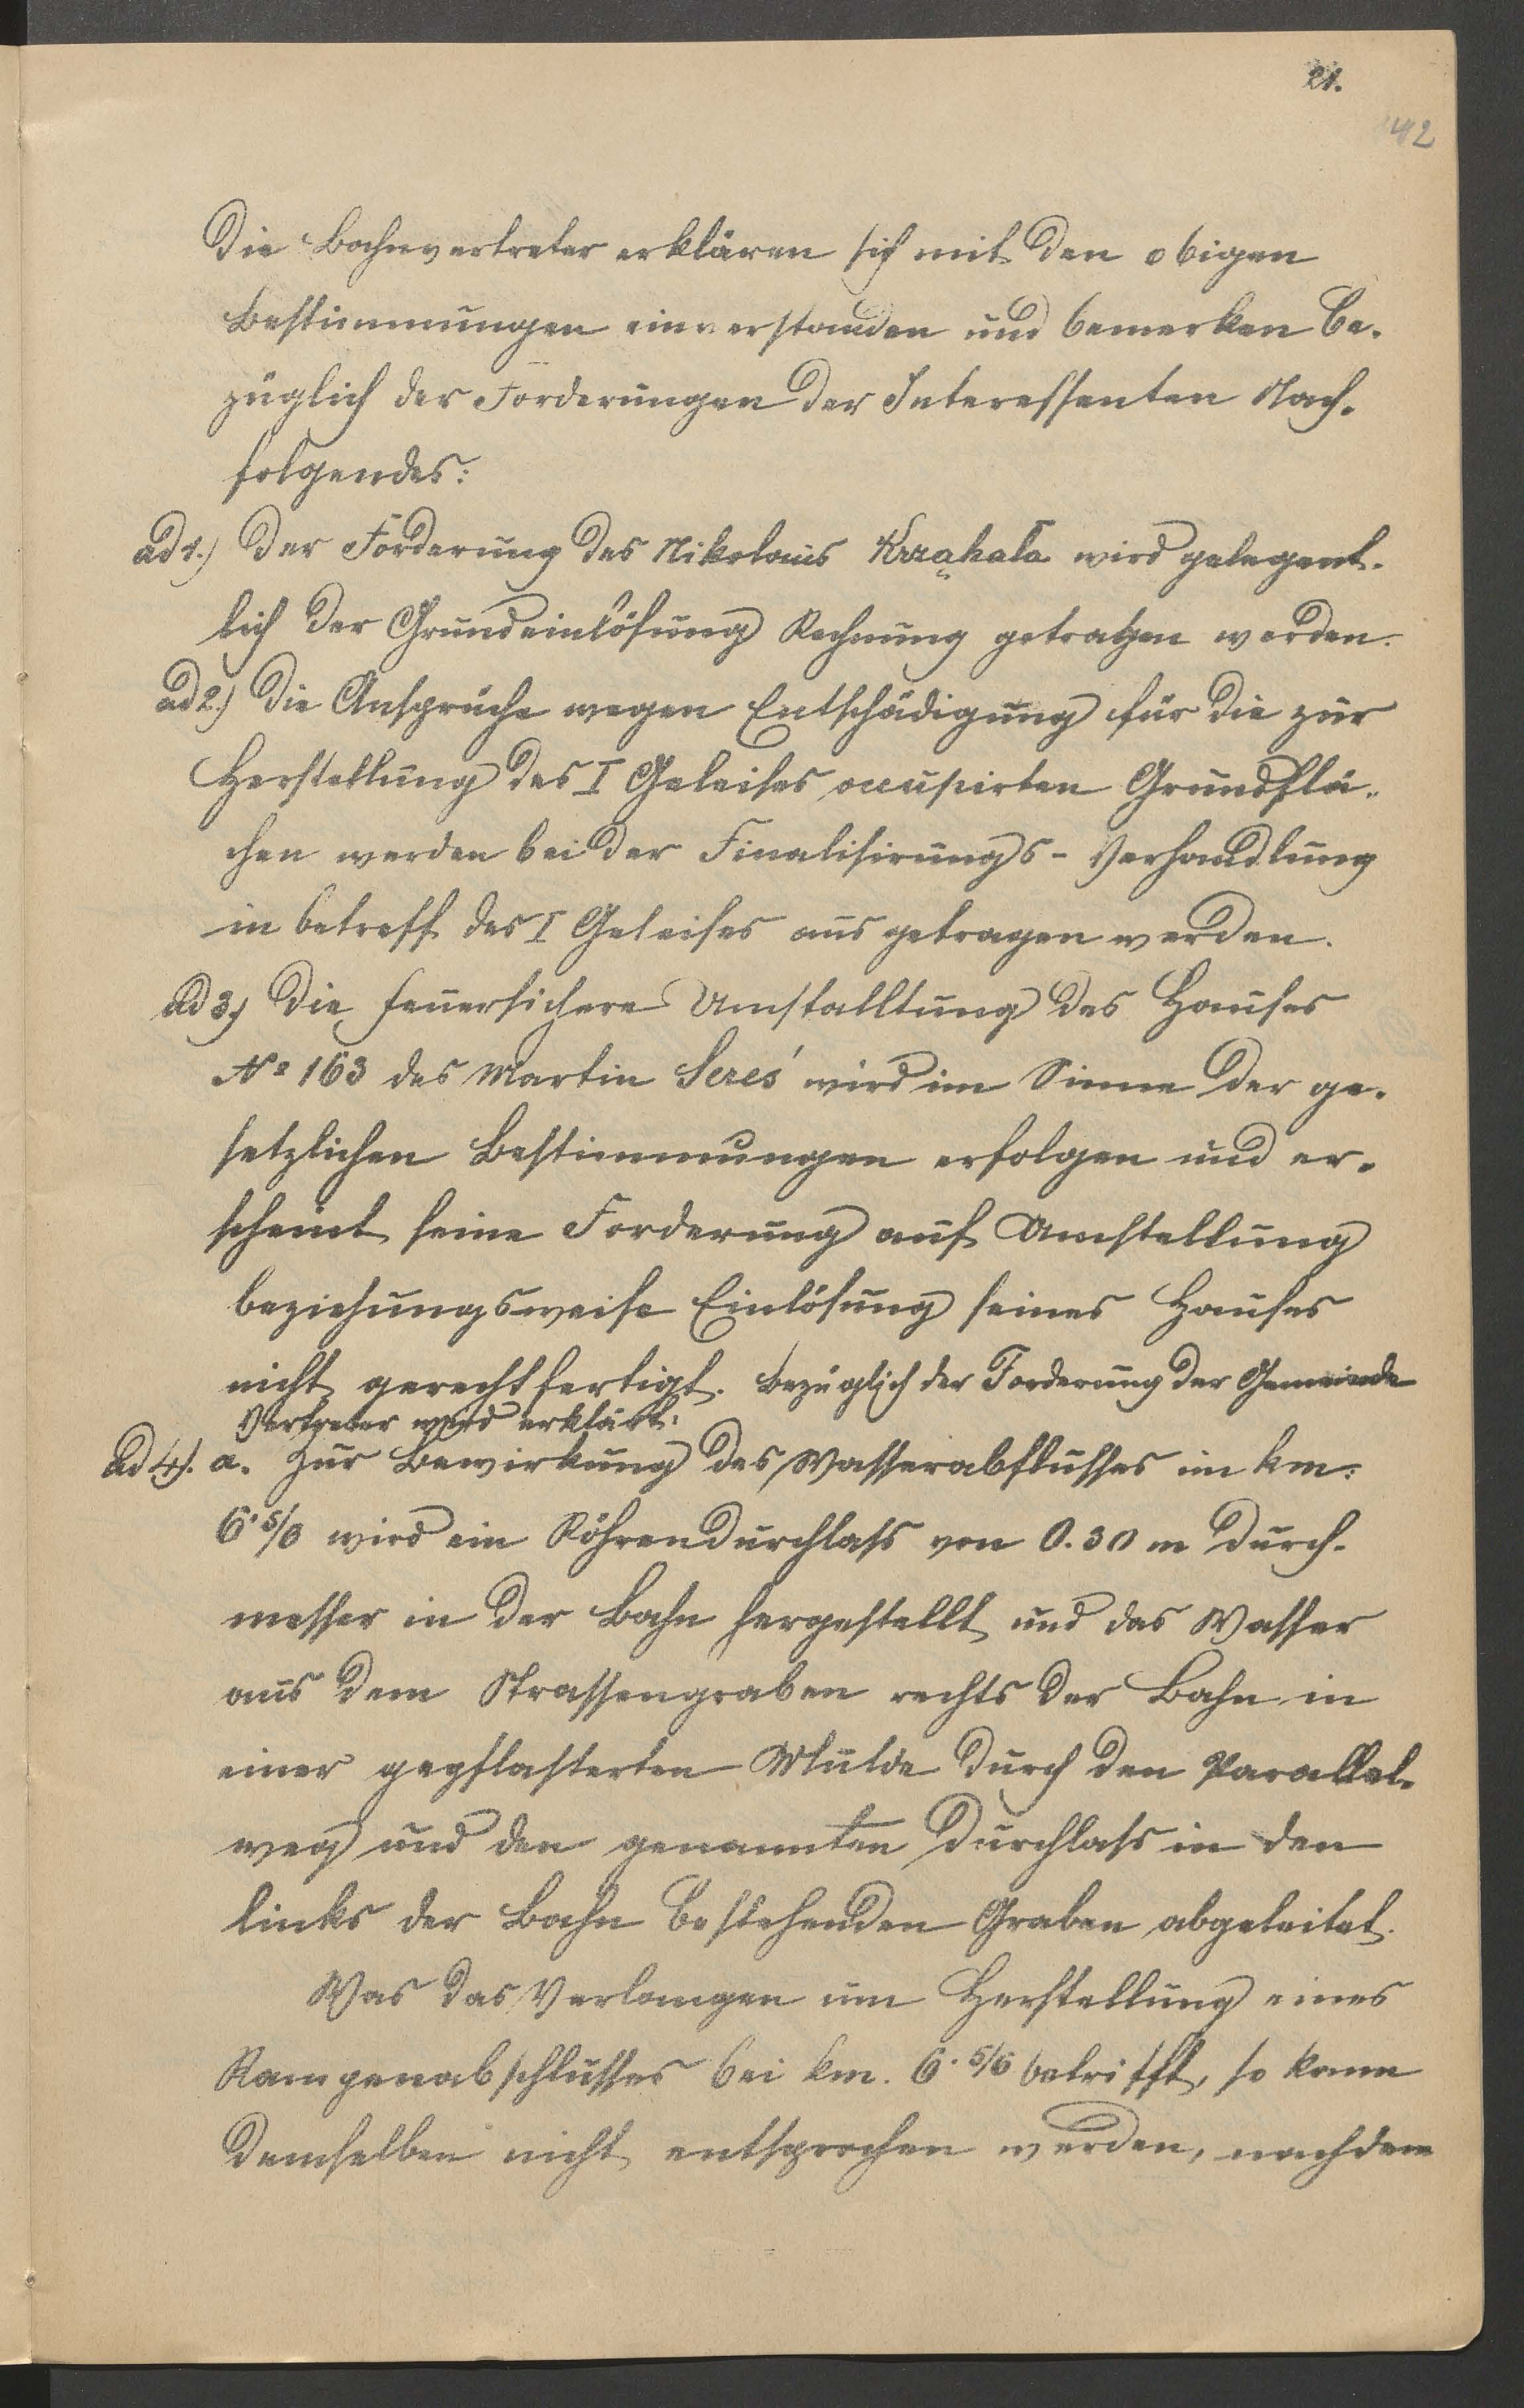 21.
42
Die Bahnvertreter erklären sich mit den obigen
Bestimmungen einverstanden und bemerken be-
züglich der Forderungen der Interessenten Nach-
folgendes:
ad 1.) Der Forderung des Nikolaus Krząkała wird gelegent-
lich der Grundeinlösung Rechnung getragen werden.
ad 2.) Die Ansprüche wegen Entschädigung für die zur
Herstellung des I Geleises occupirten Grundflä-
chen werden bei der Finalisirungs-Verhandlung
in betreff des I Geleises ausgetragen werden.
ad 3.) Die feuersichere Umstalltung des Hauses
№ 163 des Martin wird im Sinne der ge-
setzlichen Bestimmungen erfolgen und er-
scheint seine Forderung auf Umstellung
beziehungsweise Einlösung seines Hauses
nicht gerechtfertigt. Bezüglich der Forderung der Gemeinde
Vertreter wird erklärt:
ad 4.) a. Zur Bewirkung des Wasserabflusses im km:
6·5/6 wird ein Röhrendurchlass von 0.30 m Durch-
messer in der Bahn hergestellt und das Wasser
aus dem Strassengraben rechts der Bahn in
einer gepflasterten Mulde durch den Parallel-
weg und den genannten Durchlass in den
links der Bahn bestehenden Graben abgeleitet.
Was das Verlangen um Herstellung eines
Rampenabschlusses bei km. 6·5/6 betrifft, so kann
demselben nicht entsprochen werden, nachdem